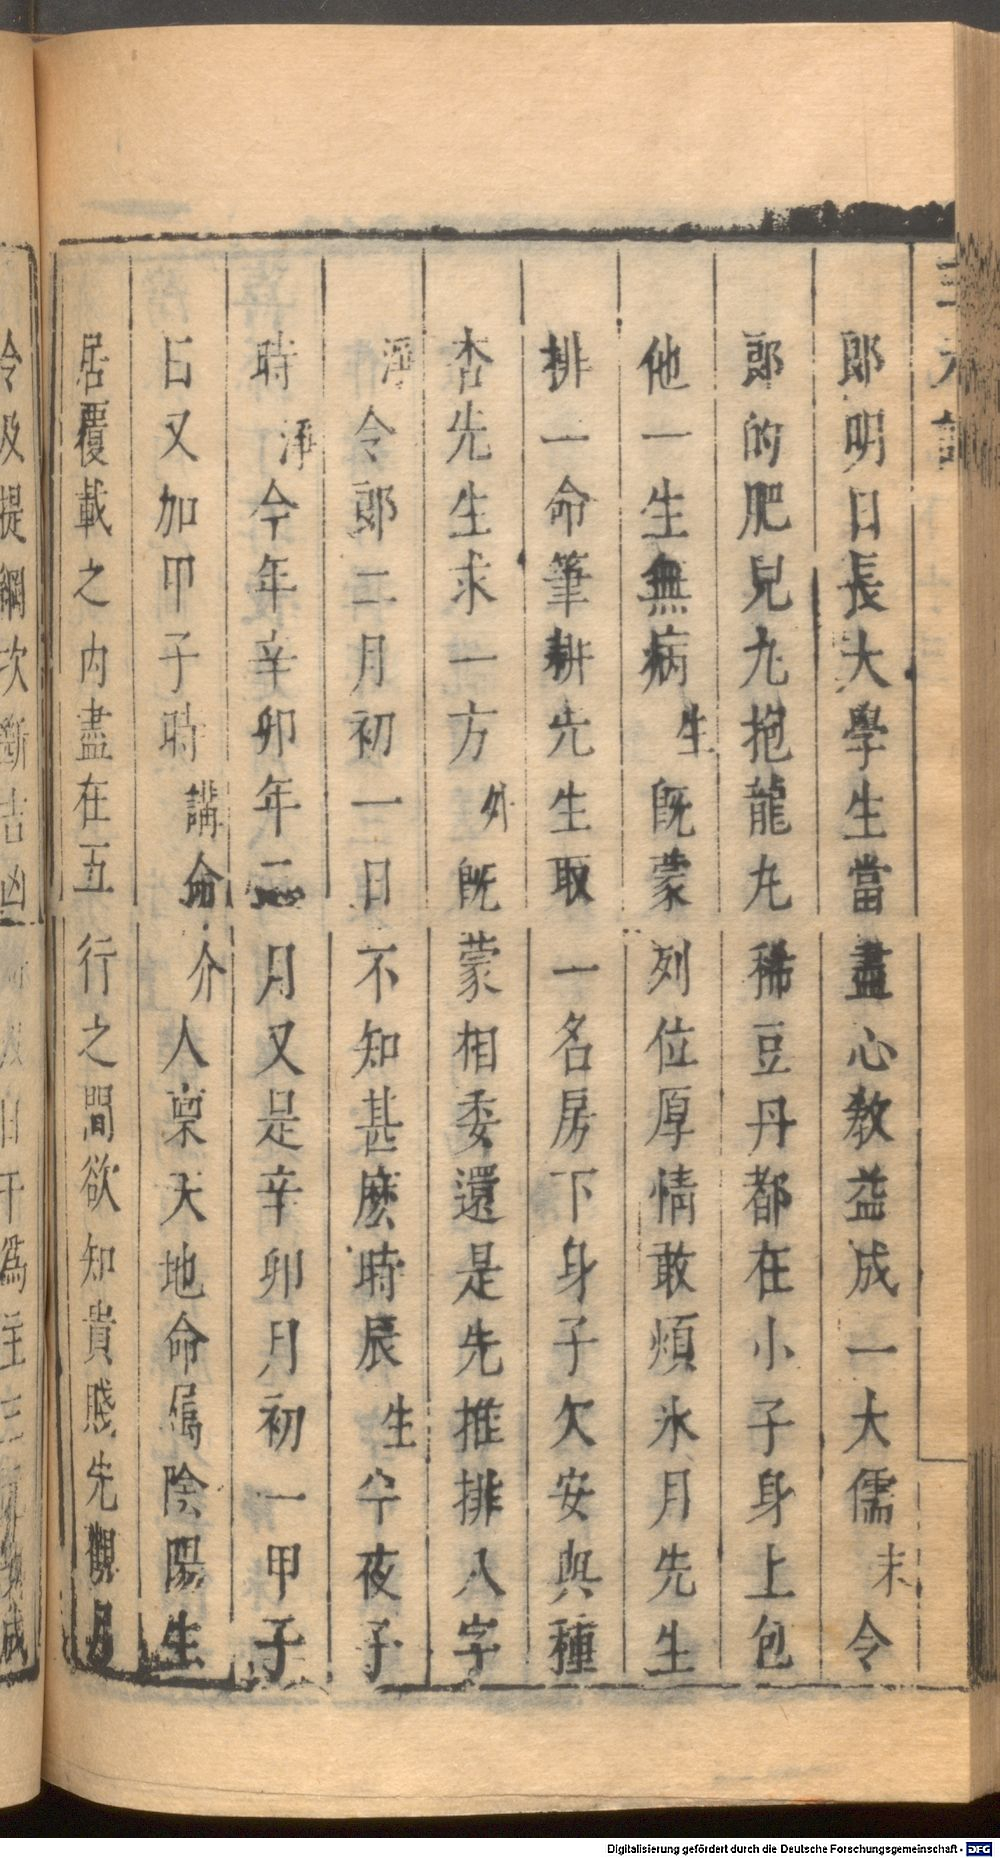 郎明日長大學生當盡心教益成一大儒末令
郎的肥兒九抱龍九稀豆丹都在小子身上包
他一生無病生旣蒙列位厚情敢煩氷月先生
排一命筆耕先生取一名房下身子欠安與種
杏先生求一方外旣蒙相委還是先推排八字
淨令郎二月初一日不知甚麽時辰生午夜子
時淨今年辛卯年二月又是辛卯月初一甲子
日又加甲子時講命介人禀天地命屬陰陽生
居覆載之内盡在五行之間欲知貴賤先觀月
令及提綱次斷吉凶
日干爲主三
Digitalisierung gefördert durch die Deutsche Forschungsgemeinschaft - DFG